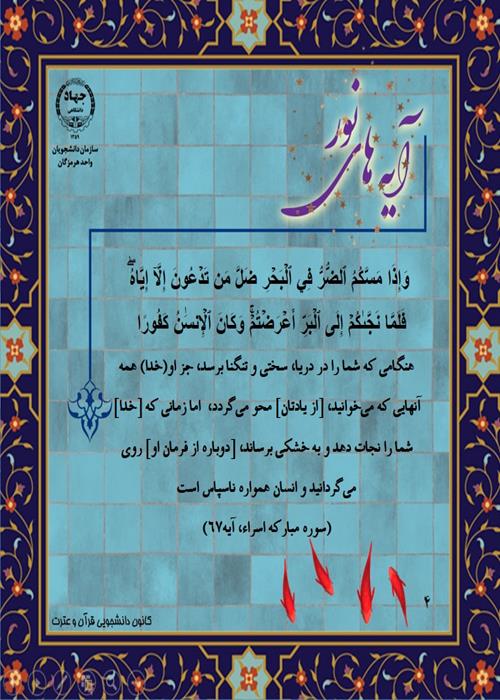 جهاد
دانشگاهی
۱۳۵۹
سازمان دانشجویان
واحد هرمزگان
آیه های نور
وَإِذَا مَسَّكُمُ ٱلضُّرُّ فِي ٱلْبَحْرِ ضَلَّ مَن تَدْعُونَ إِلَّآ إِيَّاهُ ۖ
فَلَمَّا نَجَّىٰكُمْ إِلَى ٱلْبَرِّ أَعْرَضْتُمْ ۚ وَكَانَ ٱلْإِنسَٰنُ كَفُورًا
هنگامی که شما را در دریا، سختی و تنگنا برسد، جز او(خدا) همه
آنهایی که می‌خوانید، [از یادتان] محو می‌گردد، اما زمانی که [خدا]
شما را نجات دهد و به خشکی برساند، [دوباره از فرمان او] روی
می‌گردانید و انسان همواره ناسپاس است
(سوره مبارکه اسراء، آیه۶۷)
۴
کانون دانشجویی قرآن و عترت